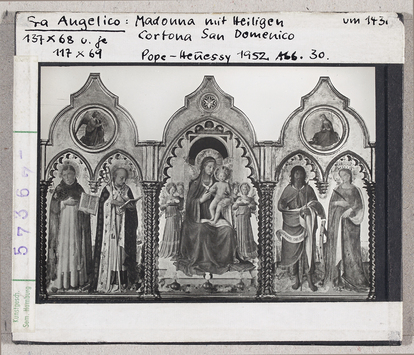 Fra Angelico: Madonna mit Heiligen um 143
137 x 68 u. je Cortona San Domenico
117 x 69 Pope-Hennessy 1952 Abb. 30.
5736
Kunstgesch.
Sem. Hamburg